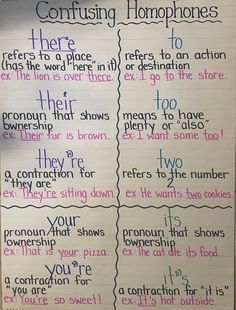 Confusing Homophones
there
refers to a place
(has the word "here" in it)
ex: The lion is over there.
their
pronoun that shows
ownership
ex: Their fur is brown.
they're
a contraction for
"they are"
ex: They're sitting down.
your
pronoun that shows
ownership
ex: That is your pizza.
you're
a contraction for
"you are"
ex: You're so sweet!
to
refers to an action
or destination
ex: I go to the store.
too
means to have
plenty or "also"
ex: I want some too!
two
refers to the number
2
ex: He wants two cookies.
its
pronoun that shows
ownership
ex: The cat ate its food.
it's
a contraction for "it is"
ex: It's hot outside.